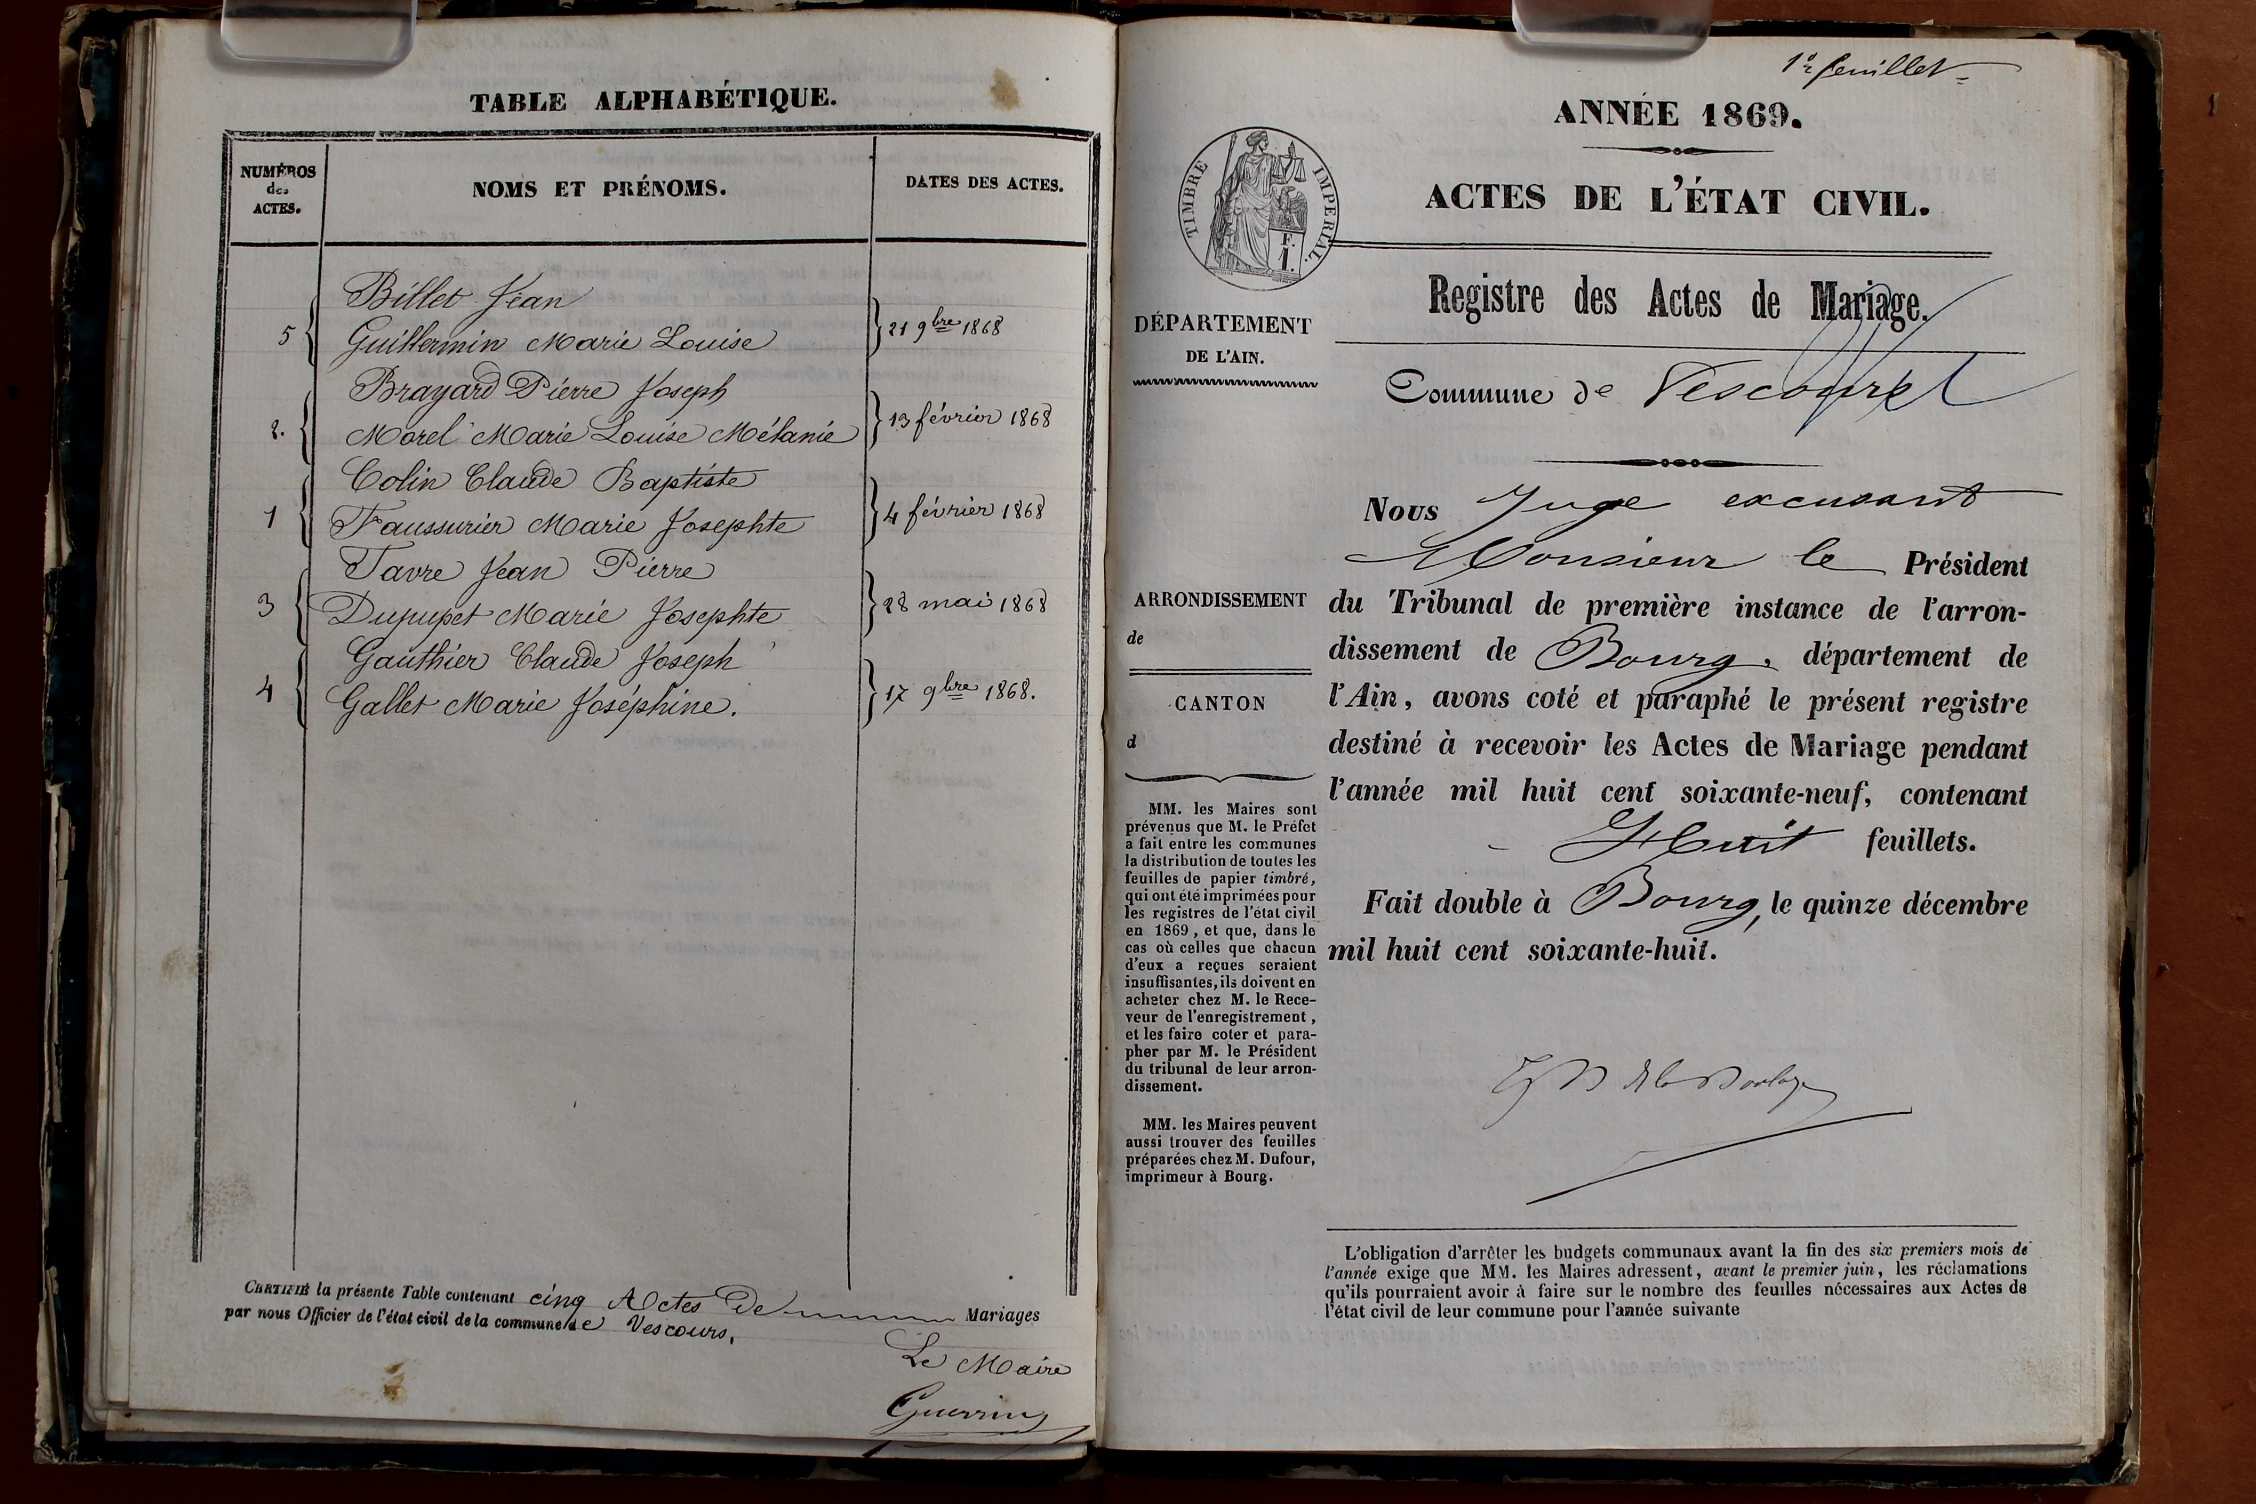 TABLE ALPHABÉTIQUE.
NUMÉROS
des
ACTES.
NOMS ET PRÉNOMS.
DATES DES ACTES.
Billet Jean
5 { Guillermin Marie Louise } 21 9bre 1868
Brayard Pierre Joseph
2. { Morel Marie Louise Mélanie } 13 février 1868
Colin Claude Baptiste
1 { Faussurier Marie Josephte } 4 février 1868
Favre Jean Pierre
3 { Dupupet Marie Josephte } 28 mai 1868
Gauthier Claude Joseph
4 { Gallet Marie Joséphine. } 17 9bre 1868.
CERTIFIÉ la présente Table contenant cinq Actes De Mariages
par nous Officier de l'état civil de la commune de Vescours.
Le Maire
Guerrin
1er feuillet
ANNÉE 1869.
ACTES DE L'ÉTAT CIVIL.
TIMBRE IMPERIAL.
F.
1.
Registre des Actes de Mariage.
DÉPARTEMENT
DE L'AIN.
Commune de Vescours
Nous Juge excusant
Monsieur le Président
du Tribunal de première instance de l'arron-
dissement de Bourg, département de
l'Ain, avons coté et paraphé le présent registre
destiné à recevoir les Actes de Mariage pendant
l'année mil huit cent soixante-neuf, contenant
Huit feuillets.
Fait double à Bourg, le quinze décembre
mil huit cent soixante-huit.
ARRONDISSEMENT
de
CANTON
d
MM. les Maires sont
prévenus que M. le Préfet
a fait entre les communes
la distribution de toutes les
feuilles de papier timbré,
qui ont été imprimées pour
les registres de l'état civil
en 1869, et que, dans le
cas où celles que chacun
d'eux a reçues seraient
insuffisantes, ils doivent en
acheter chez M. le Rece-
veur de l'enregistrement,
et les faire coter et para-
pher par M. le Président
du tribunal de leur arron-
dissement.
MM. les Maires peuvent
aussi trouver des feuilles
préparées chez M. Dufour,
imprimeur à Bourg.
L'obligation d'arrêter les budgets communaux avant la fin des six premiers mois de
l'année exige que MM. les Maires adressent, avant le premier juin, les réclamations
qu'ils pourraient avoir à faire sur le nombre des feuilles nécessaires aux Actes de
l'état civil de leur commune pour l'année suivante